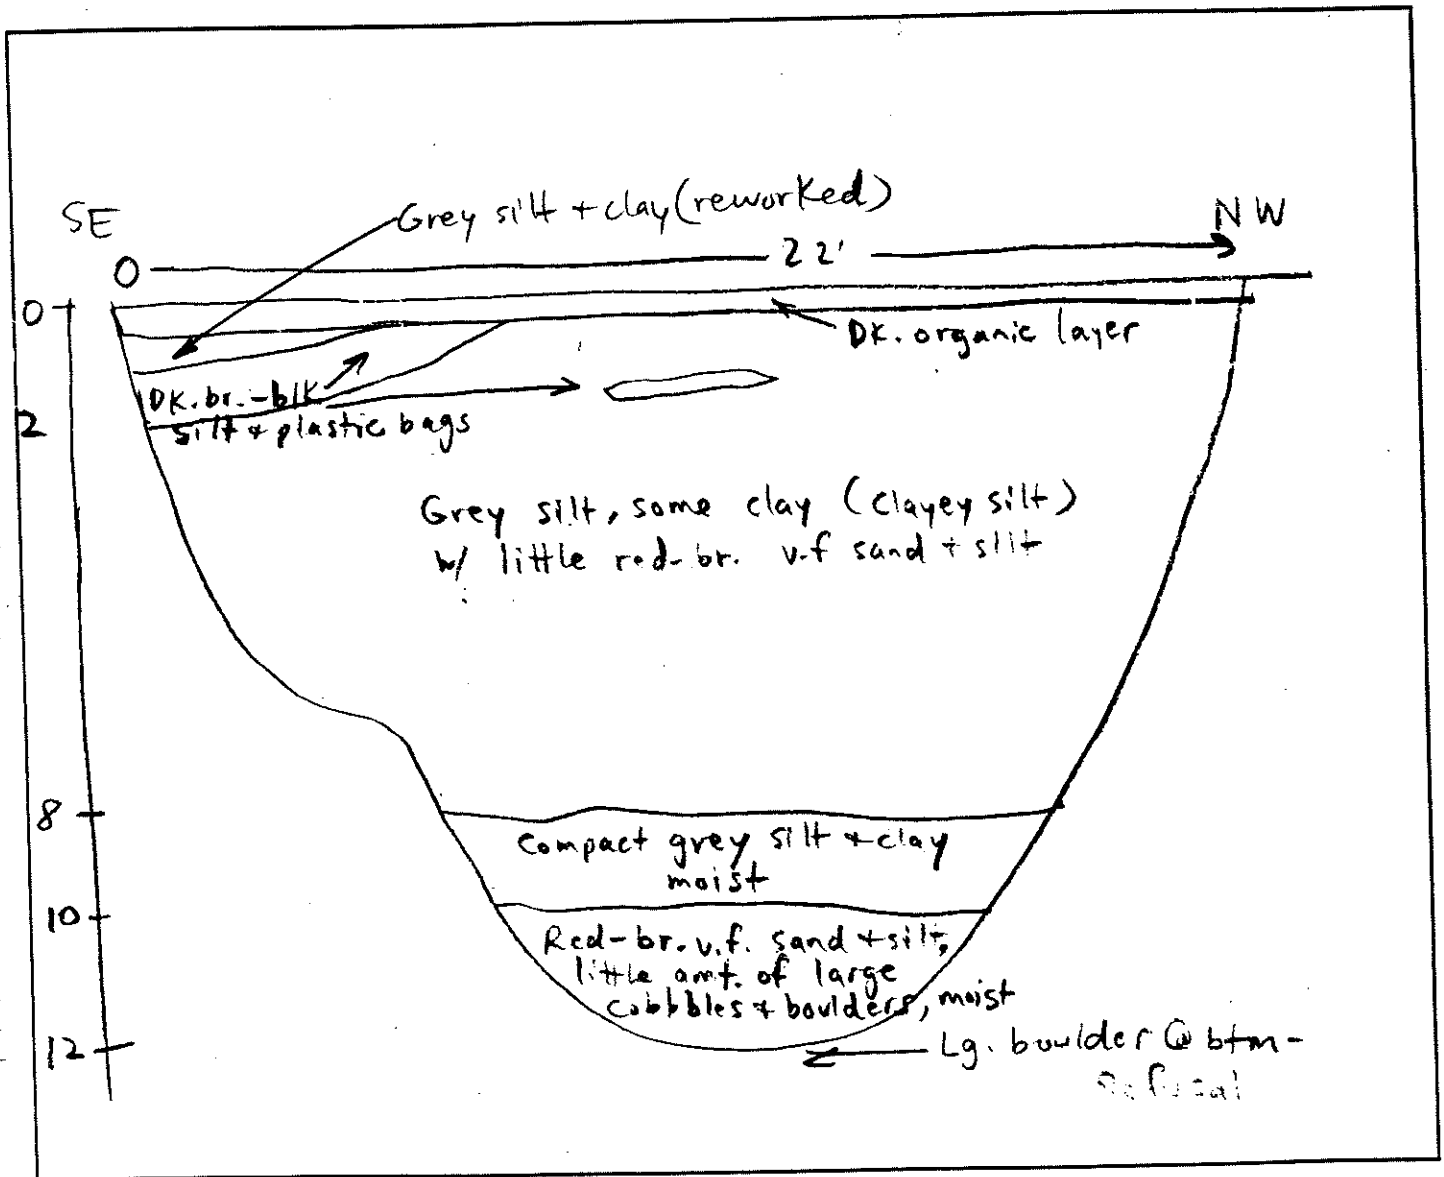 SE
Grey silt + clay (reworked)
NW
0
22'
0
DK. organic layer
DK. br. - blk
2
silt + plastic bags
Grey silt, some clay (clayey silt)
w/ little red-br. v.f sand + slit
8
Compact grey silt + clay
moist
10
Red-br. v.f. sand + silt,
little amt. of large
cobbbles + boulders, moist
12
Lg. boulder @ btm -
Refusal